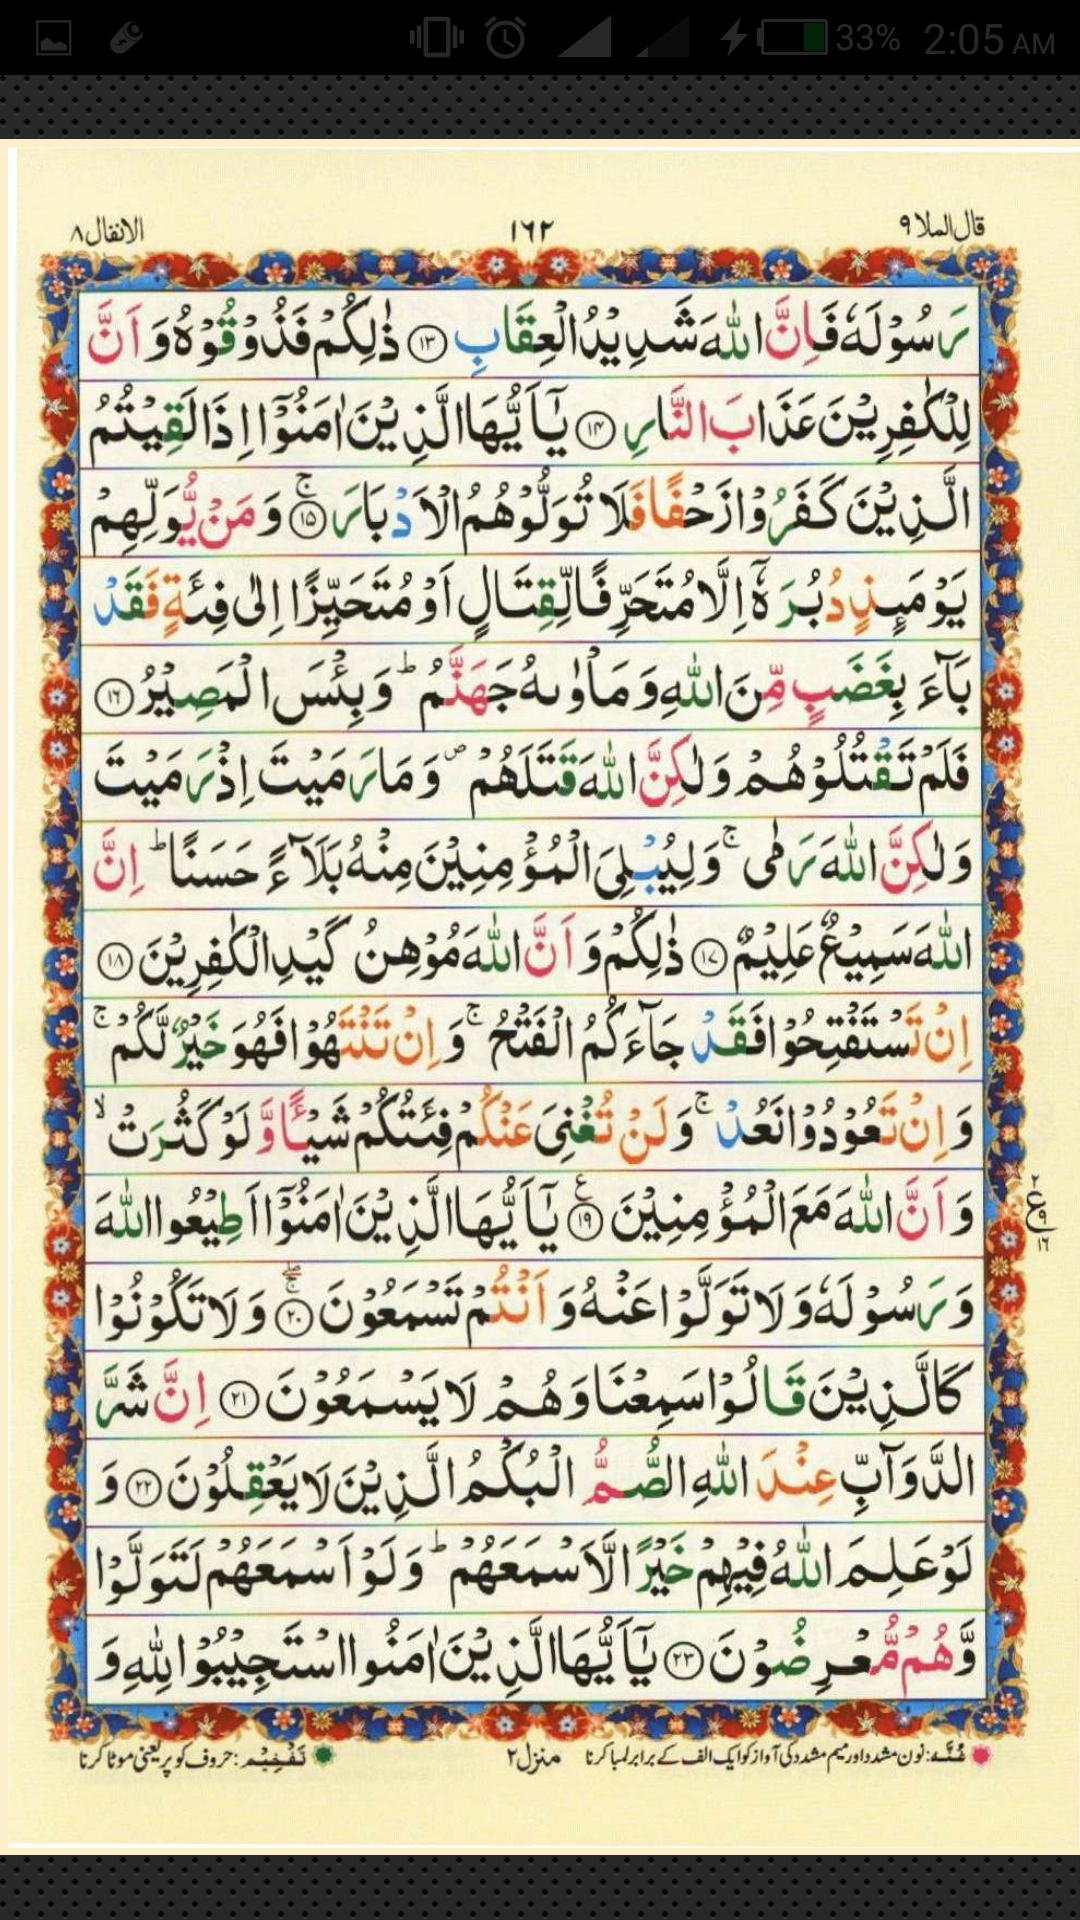 33% 2:05 AM
قال الملا ٩
١٦٢
الانفال ٨
رَسُوْلَهٗ فَاِنَّ اللّٰهَ شَدِيْدُ الْعِقَابِ ﴿١٣﴾ ذٰلِكُمْ فَذُوْقُوْهُ وَ اَنَّ
لِلْكٰفِرِيْنَ عَذَابَ النَّارِ ﴿١٤﴾ يٰۤاَيُّهَا الَّذِيْنَ اٰمَنُوْۤا اِذَا لَقِيْتُمُ
الَّذِيْنَ كَفَرُوْا زَحْفًا فَلَا تُوَلُّوْهُمُ الْاَدْبَارَ ۚ﴿١٥﴾ وَ مَنْ يُّوَلِّهِمْ
يَوْمَىِٕذٍ دُبُرَهٗۤ اِلَّا مُتَحَرِّفًا لِّقِتَالٍ اَوْ مُتَحَيِّزًا اِلٰى فِئَةٍ فَقَدْ
بَآءَ بِغَضَبٍ مِّنَ اللّٰهِ وَ مَاْوٰىهُ جَهَنَّمُ ؕ وَ بِئْسَ الْمَصِيْرُ ﴿١٦﴾
فَلَمْ تَقْتُلُوْهُمْ وَ لٰكِنَّ اللّٰهَ قَتَلَهُمْ ۪ وَ مَا رَمَيْتَ اِذْ رَمَيْتَ
وَ لٰكِنَّ اللّٰهَ رَمٰى ۚ وَ لِيُبْلِىَ الْمُؤْمِنِيْنَ مِنْهُ بَلَآءً حَسَنًا ؕ اِنَّ
اللّٰهَ سَمِيْعٌ عَلِيْمٌ ﴿١٧﴾ ذٰلِكُمْ وَ اَنَّ اللّٰهَ مُوْهِنُ كَيْدِ الْكٰفِرِيْنَ ﴿١٨﴾
اِنْ تَسْتَفْتِحُوْا فَقَدْ جَآءَكُمُ الْفَتْحُ ۚ وَ اِنْ تَنْتَهُوْا فَهُوَ خَيْرٌ لَّكُمْ ۚ
وَ اِنْ تَعُوْدُوْا نَعُدْ ۚ وَ لَنْ تُغْنِىَ عَنْكُمْ فِئَتُكُمْ شَيْـًٔا وَّ لَوْ كَثُرَتْ ۙ
وَ اَنَّ اللّٰهَ مَعَ الْمُؤْمِنِيْنَ ﴿١٩﴾ ع يٰۤاَيُّهَا الَّذِيْنَ اٰمَنُوْۤا اَطِيْعُوا اللّٰهَ
٢ ع ٩ ١٦
وَ رَسُوْلَهٗ وَ لَا تَوَلَّوْا عَنْهُ وَ اَنْتُمْ تَسْمَعُوْنَ ﴿٢٠﴾ وَ لَا تَكُوْنُوْا
كَالَّذِيْنَ قَالُوْا سَمِعْنَا وَ هُمْ لَا يَسْمَعُوْنَ ﴿٢١﴾ اِنَّ شَرَّ
الدَّوَآبِّ عِنْدَ اللّٰهِ الصُّمُّ الْبُكْمُ الَّذِيْنَ لَا يَعْقِلُوْنَ ﴿٢٢﴾ وَ
لَوْ عَلِمَ اللّٰهُ فِيْهِمْ خَيْرًا لَّاَسْمَعَهُمْ ؕ وَ لَوْ اَسْمَعَهُمْ لَتَوَلَّوْا
وَّ هُمْ مُّعْرِضُوْنَ ﴿٢٣﴾ يٰۤاَيُّهَا الَّذِيْنَ اٰمَنُوا اسْتَجِيْبُوْا لِلّٰهِ وَ
غُنَّہ: نون مشدد اور میم مشدد کی آواز کو ایک الف کے برابر لمبا کرنا
منزل ٢
تَفْخِیْم: حروف کو پر یعنی موٹا کرنا